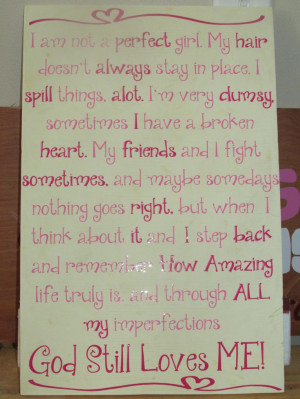 I am not a perfect girl. My hair
doesn't always stay in place. I
spill things, alot. I'm very clumsy,
sometimes I have a broken
heart. My friends and I fight
sometimes, and maybe somedays
nothing goes right, but when I
think about it and I step back
and remember How Amazing
life truly is, and through ALL
my imperfections
God Still Loves ME!